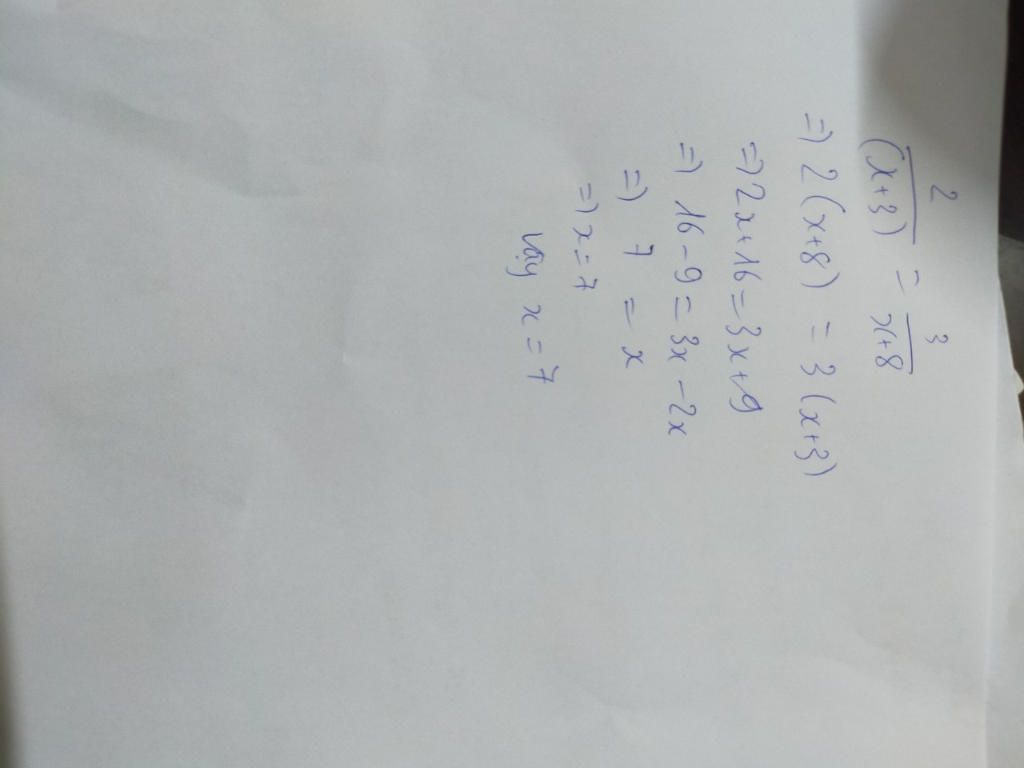 2/(x+3) = 3/x+8
=) 2(x+8) = 3(x+3)
=) 2x+16 = 3x+9
=) 16-9 = 3x-2x
=) 7 = x
=) x = 7
Vậy x = 7